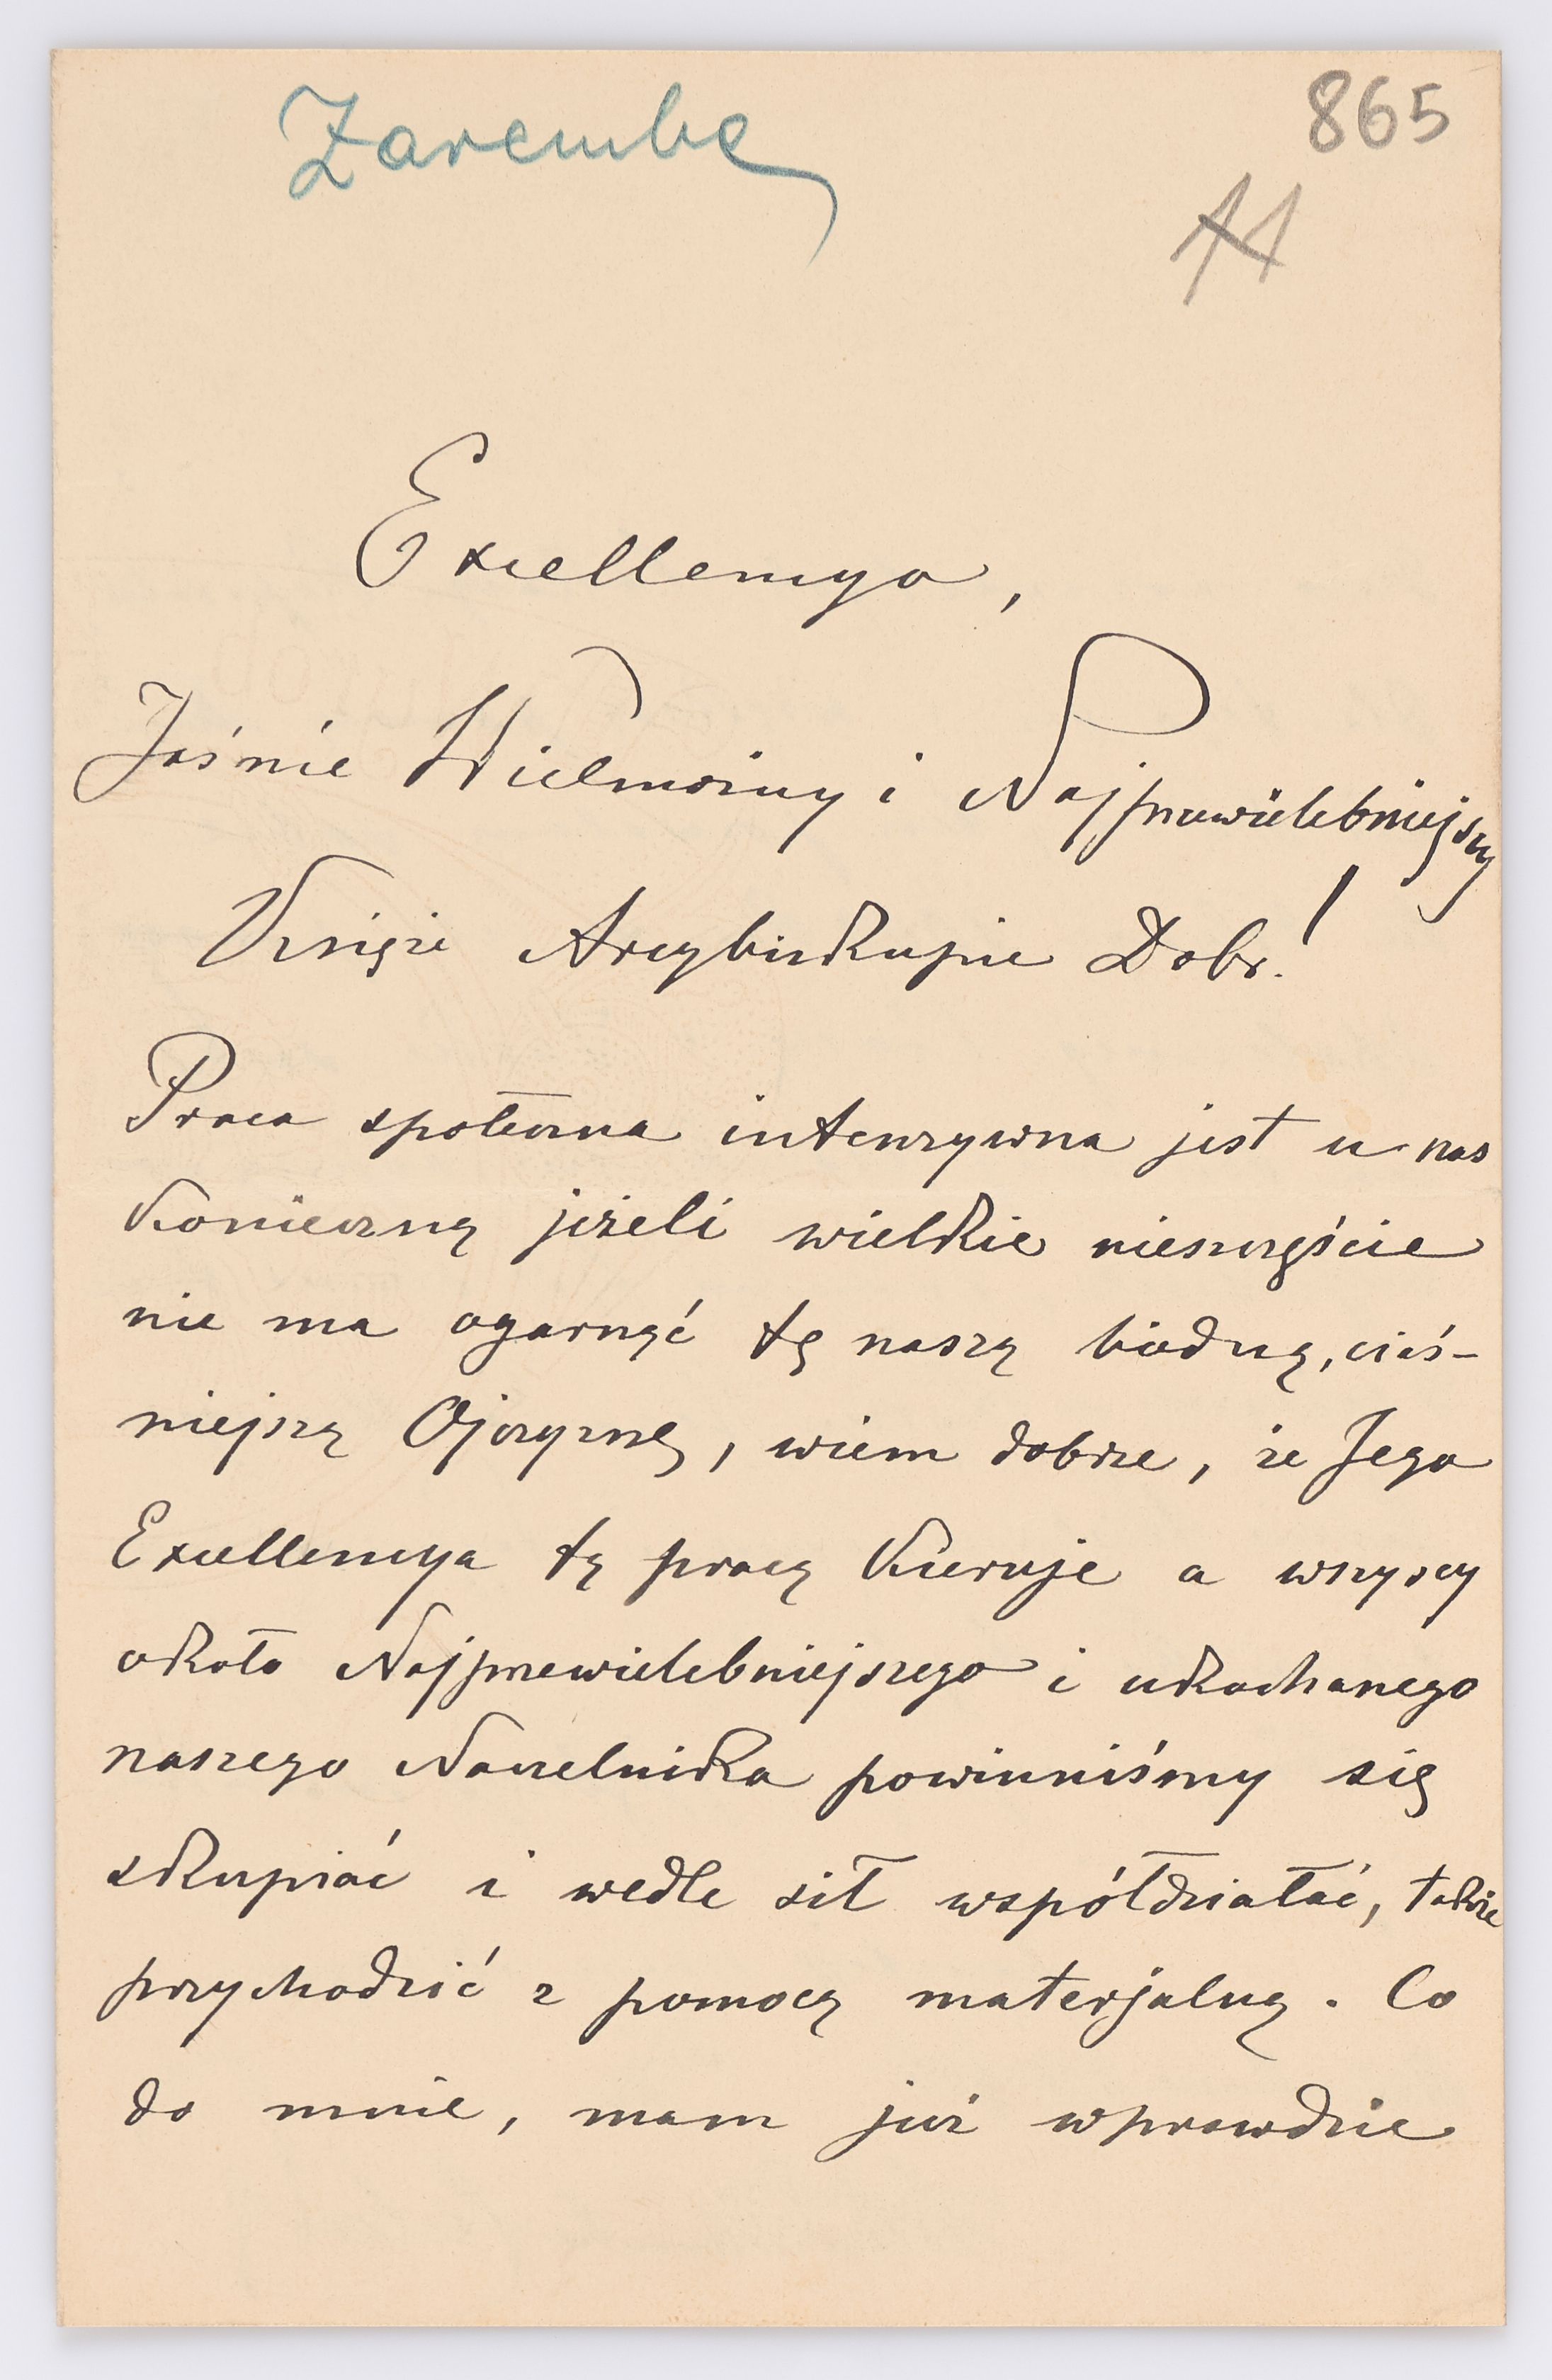 Zaremba
865
11
Excellencyo,
Jaśnie Wielmożny i Najprzewielebniejszy
Księże Arcybiskupie Dobr.!
Praca społeczna intenzywna jest u nas
konieczną jeżeli wielkie nieszczęście
nie ma ogarnąć tę naszą biedną, ciaś-
niejszą Ojczyznę, wiem dobrze, że Jego
Excellencya tą pracą kieruje a wszyscy
około Najprzewielebniejszego i ukochanego
naszego Naczelnika powinniśmy się
skupiać i wedle sił współdziałać, także
przychodzić z pomocą materjalną. Co
do mnie, mam już wprawdzie